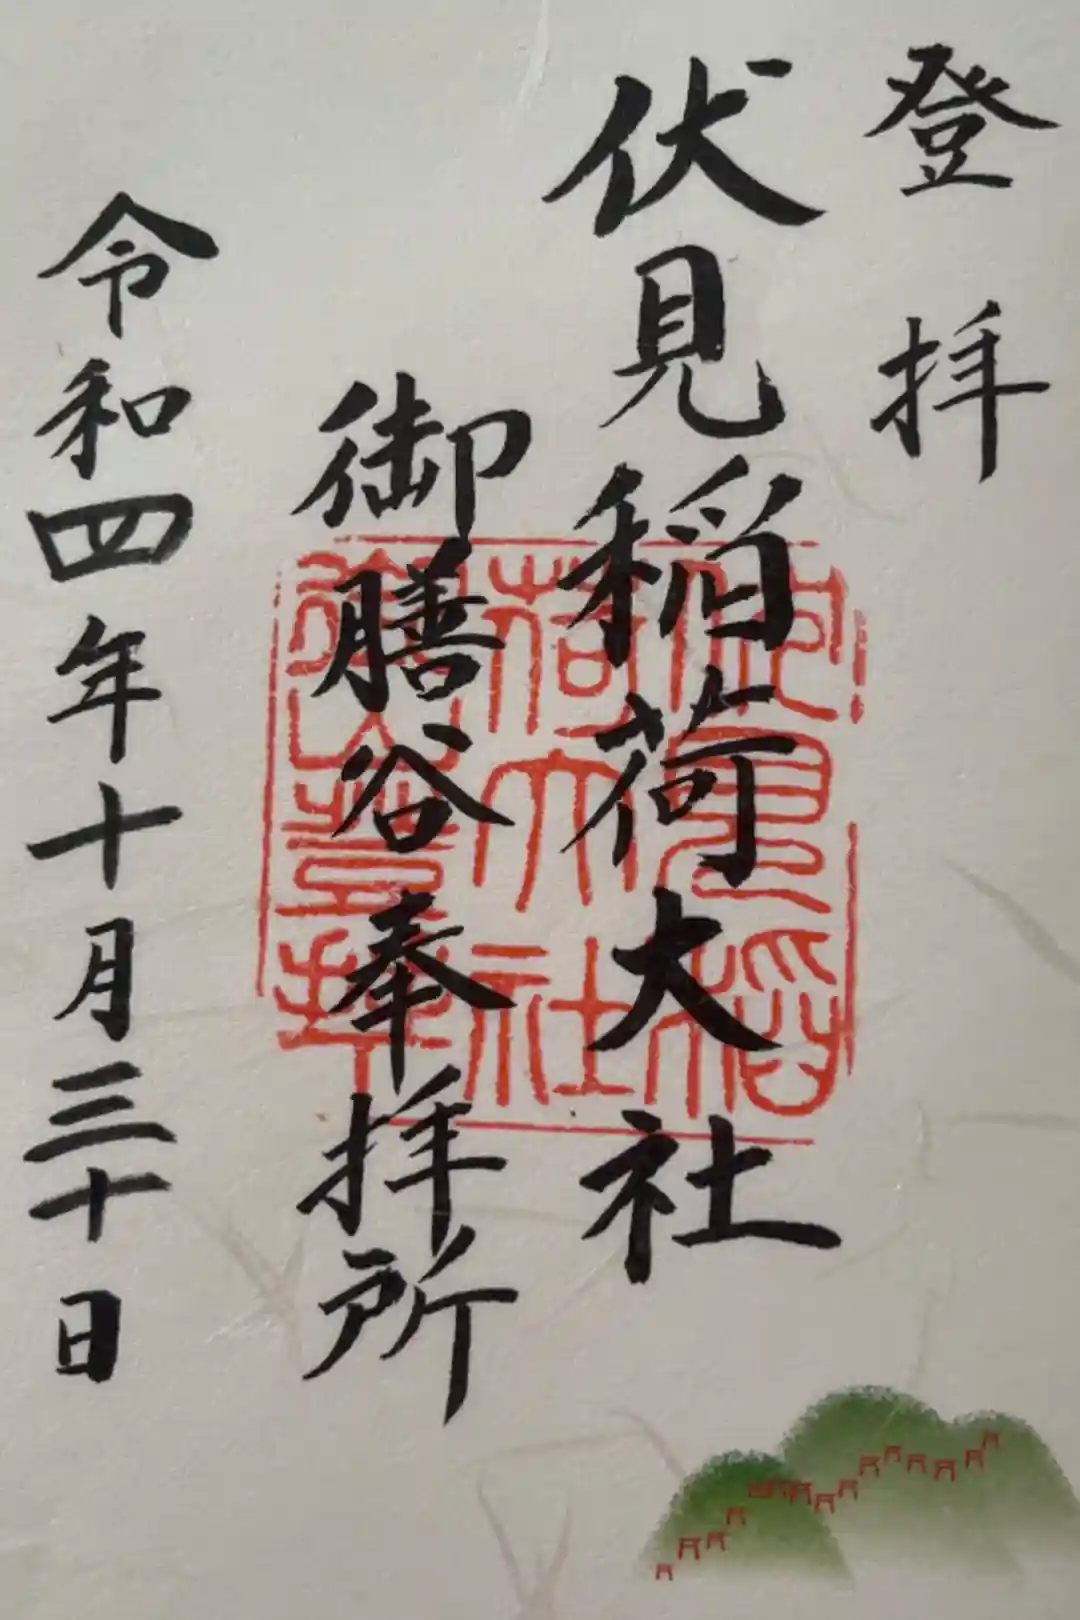 登拝
伏見稲荷大社
御膳谷奉拝所
令和四年十月三十日
伏見稲
荷大社